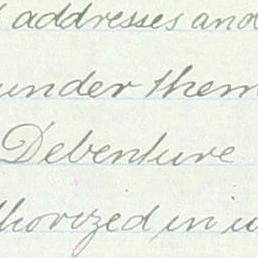 addresses and
under them
Debenture
thorized in